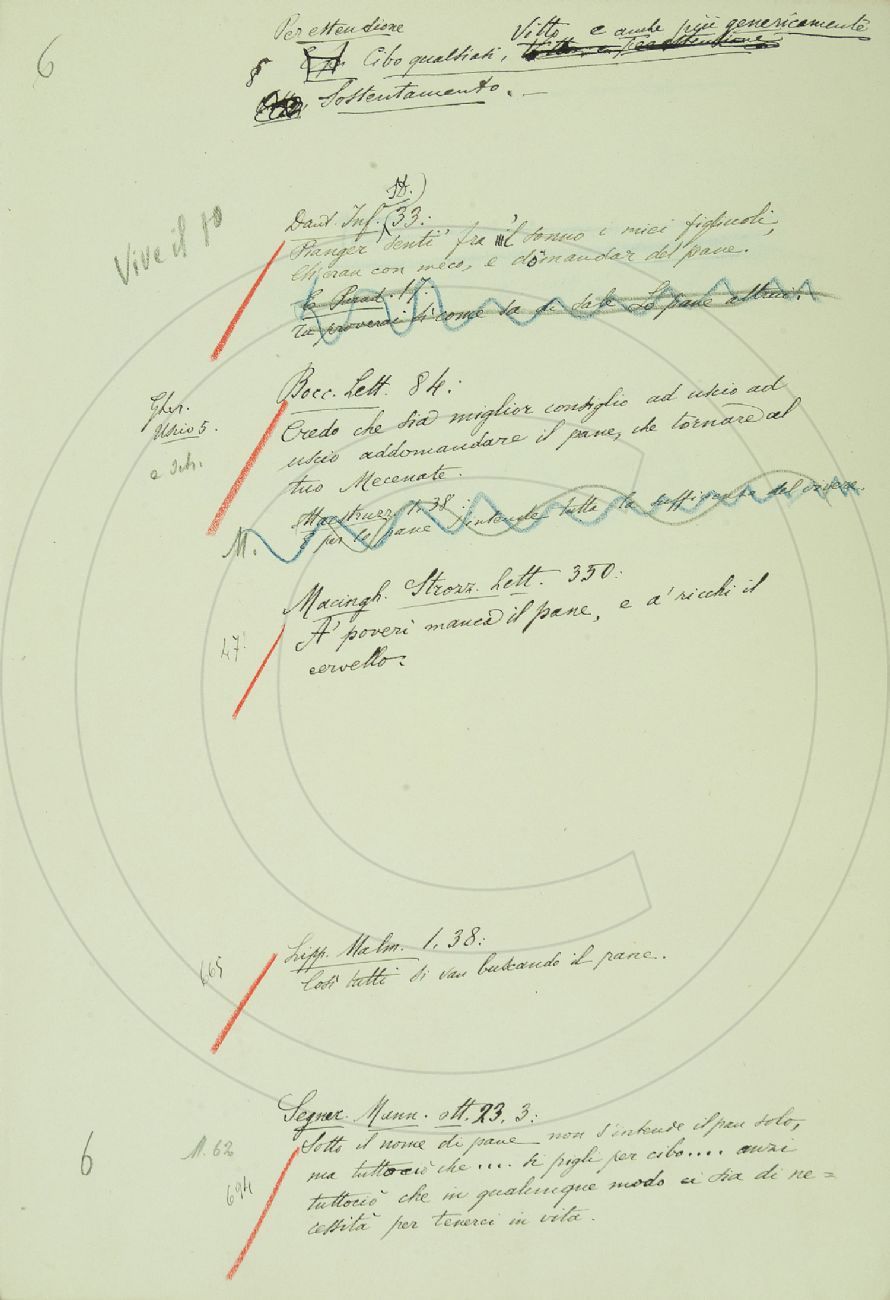 6
Per estensione
Vitto e anche più genericamente
§ Cibo qualsiasi,
Sostentamento. —
Vive il 10
St.)
Dant. Inf. (33:
Pianger senti' fra 'l sonno i miei figliuoli,
Ch'eran con meco, e domandar del pane.
E Parad. 17:
Tu proverai sì come sa di sale Lo pane altrui.
Bocc. Lett. 84:
Credo che sia miglior consiglio ad uscio ad
uscio addomandare il pane, che tornare al
tuo Mecenate.
Gher.
Uscio 5.
Maestruzz. 1. 38:
E per lo pane s'intende tutta la sufficienza del vivere.
M.
Macingh. Strozz. Lett. 350:
A' poveri manca il pane, e a' ricchi il
cervello.
47
Lipp. Malm. 1. 38:
Così tutti si van buscando il pane.
665
Segner. Mann. ott. 23. 3:
Sotto il nome di pane non s'intende il pan solo,
ma tuttociò che .... si pigli per cibo.... anzi
tuttociò che in qualunque modo ci sia di ne=
cessità per tenerci in vita.
6
M. 62
694